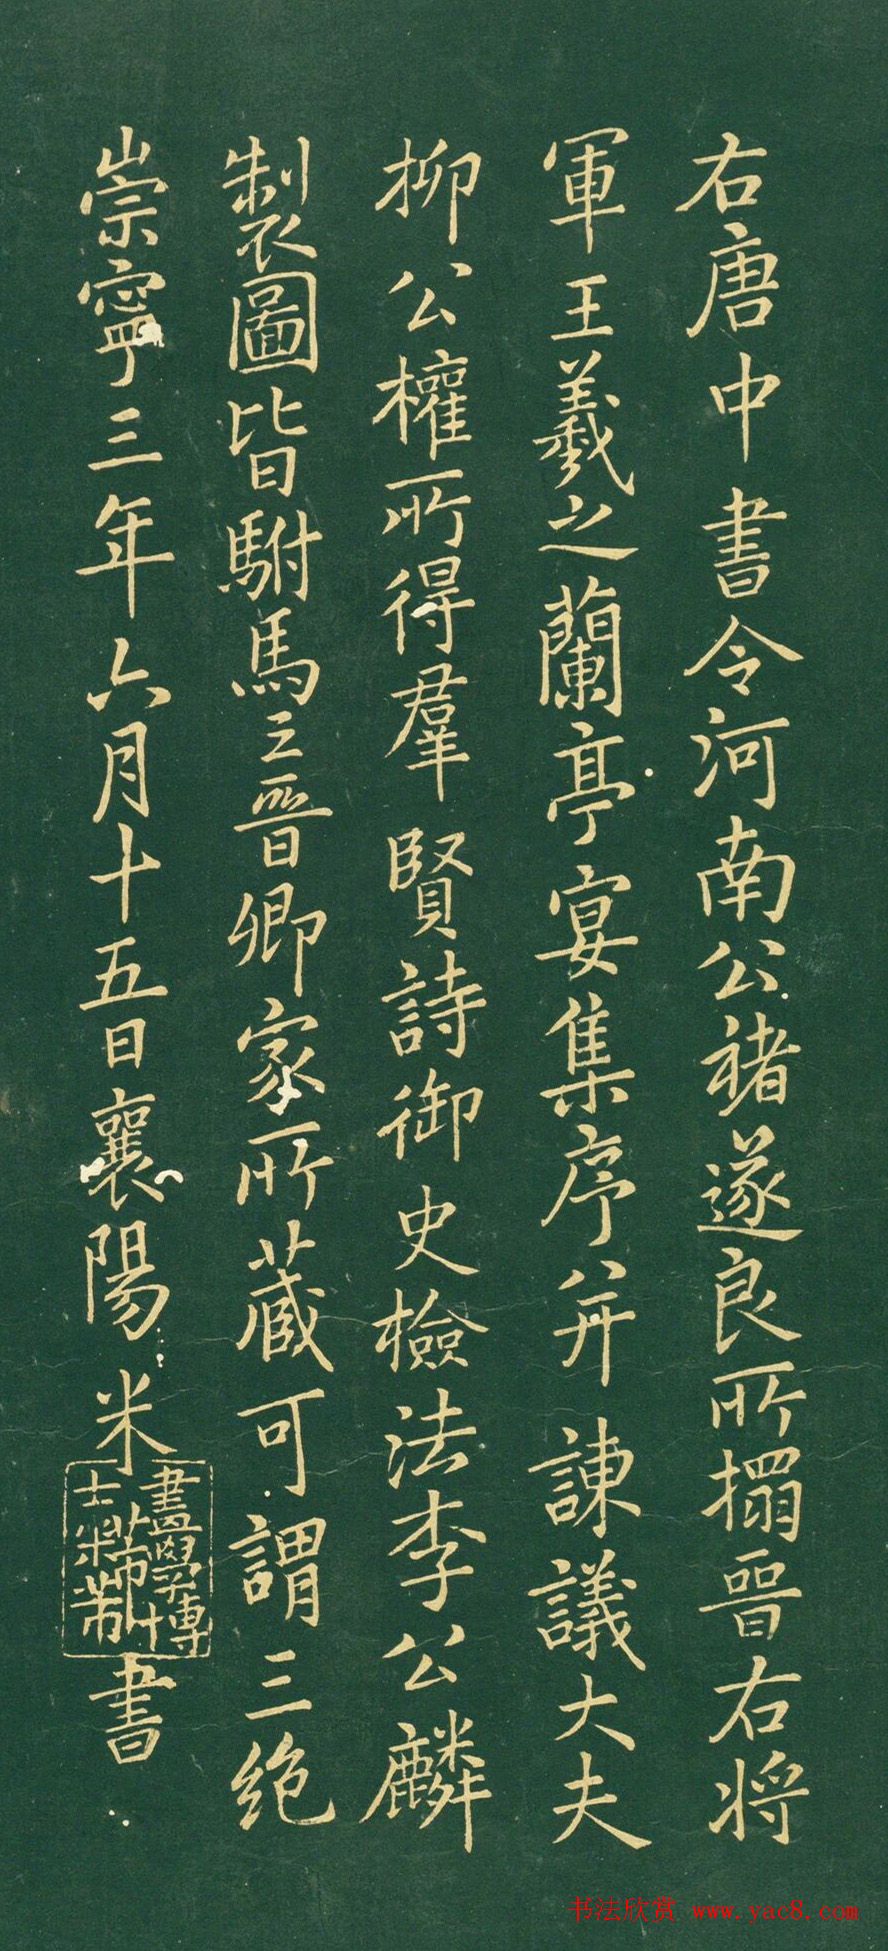 右唐中書令河南公褚遂良所搨晉右將
軍王羲之蘭亭宴集序并諫議大夫
柳公權所得羣賢詩御史檢法李公麟
製圖皆駙馬王晉卿家所蔵可謂三绝
崇寧三年六月十五日襄陽米
書畫學博士米芾
書
书法欣赏 www.yac8.com